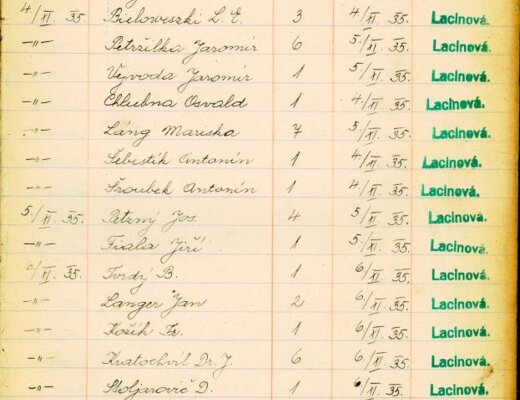 4/XI. 35. Bieloweszki L. E. 3 4/XI. 35. Lacinová.
—"— Petržilka Jaromír 6 5./XI. 35. Lacinová.
—"— Vejvoda Jaromír 1 5/XI. 35. Lacinová.
—"— Chlubna Osvald 1 4/XI. 35. Lacinová.
—"— Láng Mariska 7 5./XI. 35. Lacinová.
—"— Šebestík Antonín 1 4/XI. 35. Lacinová.
—"— Šroubek Antonín 1 4/XI. 35. Lacinová.
5./XI. 35. Petzný Jos. 4 5/XI. 35. Lacinová.
—"— Fiala Jiří 1 5./XI. 35. Lacinová.
6/XI. 35. Tvrdý B. 1 6/XI. 35. Lacinová.
—"— Langer Jan 2 6/XI. 35. Lacinová.
—"— Kožík Fr. 1 6/XI. 35. Lacinová.
—"— Kratochvíl Dr. J. 6 6/XI. 35. Lacinová.
—"— Stoljarovič D. 1 6/XI. 35. Lacinová.